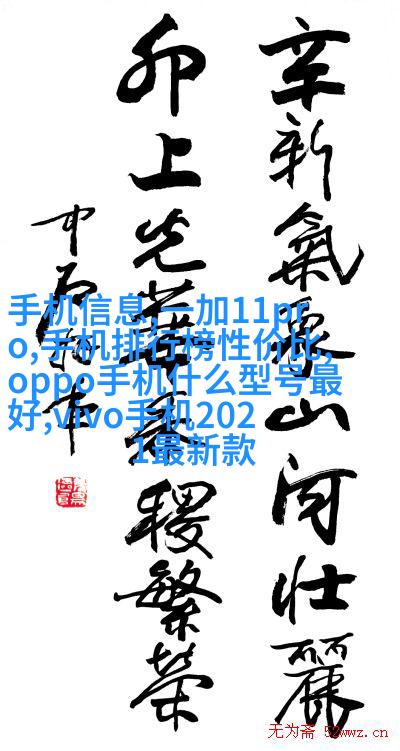 辛新氣象山河壮麗
卯上光華社稷繁荣
手机信息,一加11pr
o,手机排行榜性价比,
oppo手机什么型号最
好,vivo手机202
1最新款
无为斋 52wwz.cn